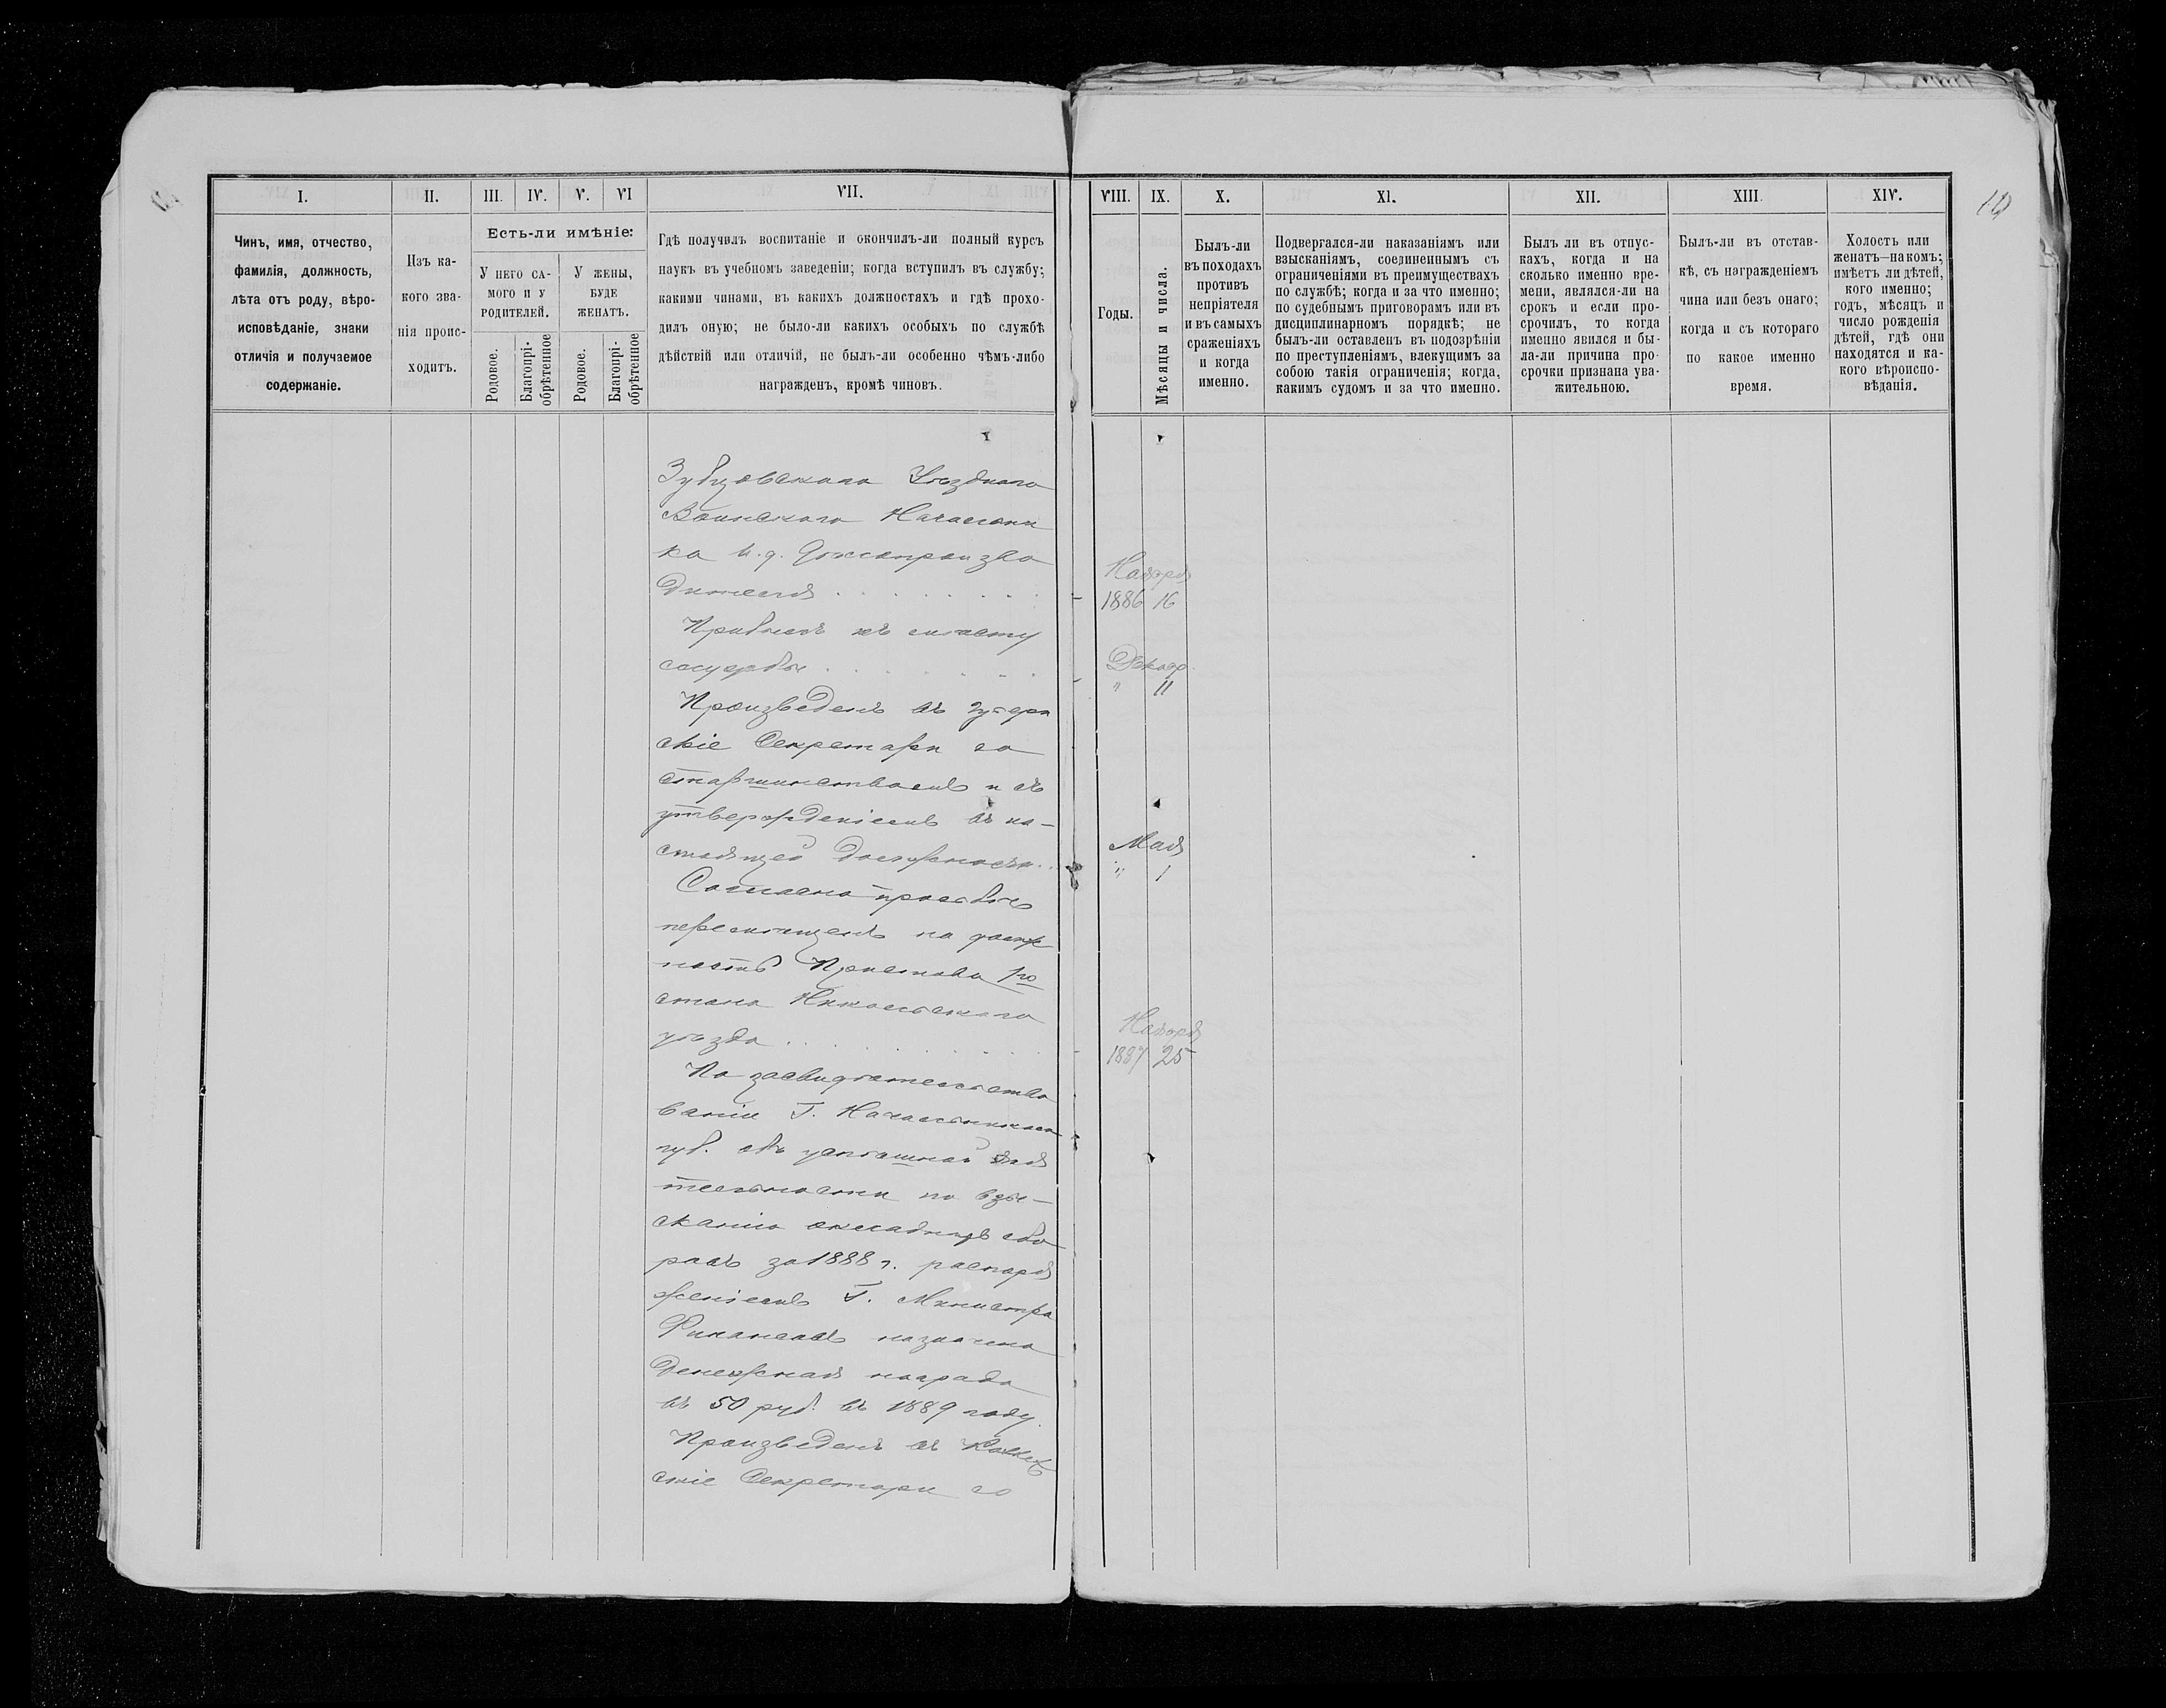 I.
II.
III.
IV.
V.
VI
VII.
Чинъ, имя, отчество,
фамилія, должность,
лѣта отъ роду, вѣро-
исповѣданіе, знаки
отличія и получаемое
содержаніе.
Изъ ка-
кого зва-
нія проис-
ходитъ.
Есть-ли имѣніе:
У него са-
мого и у
родителей.
У жены,
буде
женатъ.
Родовое.
Благопрі-
обрѣтенное
Родовое.
Благопрі-
обрѣтенное
Гдѣ получилъ воспитаніе и окончилъ-ли полный курсъ
наукъ въ учебномъ заведеніи; когда вступилъ въ службу;
какими чинами, въ какихъ должностяхъ и гдѣ прохо-
дилъ оную; не было-ли какихъ особыхъ по службѣ
дѣйствій или отличій, не былъ-ли особенно чѣмъ-либо
награжденъ, кромѣ чиновъ.
Зубцовскаго Уѣзднаго
Воинскаго Начальни
ка И.д. Дѣлопроизво
дителя
Прибылъ къ мѣсту
службы
Произведенъ въ Губерн
скіе Секретари со
старшинствомъ и съ
утвержденіемъ въ на-
стоящей должности
Согласно просьбѣ
перемѣщенъ на долж
ность Пристава 1го
стана Никольскаго
уѣзда
По засвидѣтельство
ванію Г. Начальника
губ. объ успѣшной дѣя
тельности по взы-
сканію окладныхъ сбо
ровъ за 1888 г. распоря
женіемъ Г. Министра
Финансовъ назначена
денежная награда
въ 50 руб. въ 1889 году.
Произведенъ въ Коллеж
скіе Секретари со
VIII.
IX.
X.
XI.
XII.
XIII.
XIV.
Годы.
Мѣсяцы и числа.
Былъ-ли
въ походахъ
противъ
непріятеля
и въ самыхъ
сраженіяхъ
и когда
именно.
Подвергался-ли наказаніямъ или
взысканіямъ, соединеннымъ съ
ограниченіями въ преимуществахъ
по службѣ; когда и за что именно;
по судебнымъ приговорамъ или въ
дисциплинарномъ порядкѣ; не
былъ-ли оставленъ въ подозрѣніи
по преступленіямъ, влекущимъ за
собою такія ограниченія; когда,
какимъ судомъ и за что именно.
Былъ ли въ отпус-
кахъ, когда и на
сколько именно вре-
мени, являлся-ли на
срокъ и если про-
срочилъ, то когда
именно явился и бы-
ла-ли причина про-
срочки признана ува-
жительною.
Былъ-ли въ отстав-
кѣ, съ награжденіемъ
чина или безъ онаго;
когда и съ котораго
по какое именно
время.
Холостъ или
женатъ—на комъ;
имѣетъ ли дѣтей,
кого именно;
годъ, мѣсяцъ и
число рожденія
дѣтей, гдѣ они
находятся и ка-
кого вѣроиспо-
вѣданія.
Ноября
1886 16
Декабр.
" 11
Мая
" 1
Ноября
1887 25